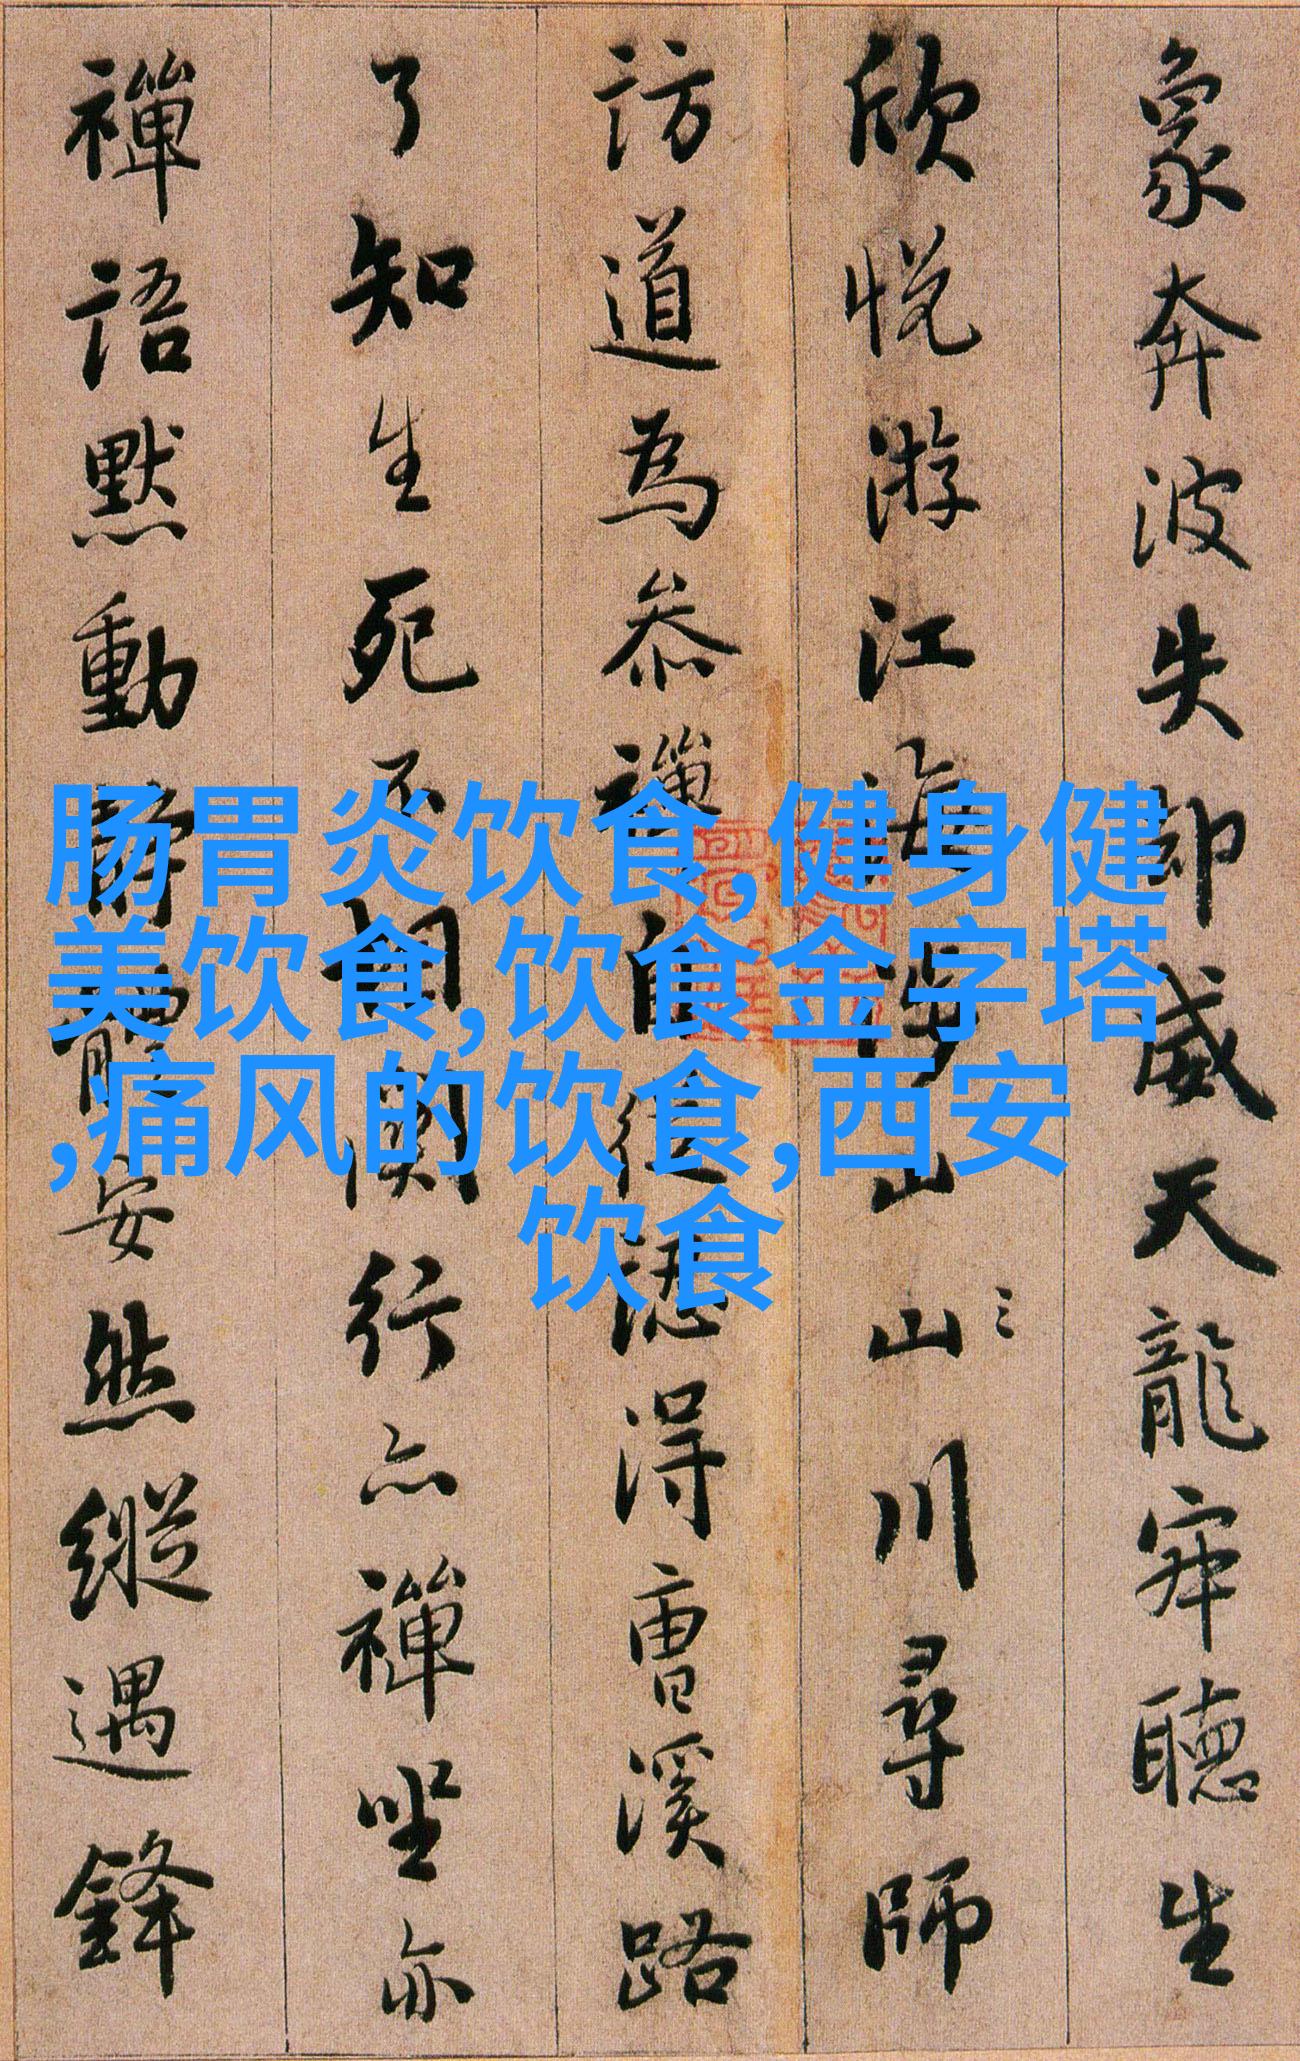 象奔波失却威天龍寂聽生
欣悅游江海涉山山川尋師
訪道為參禪自從認得曹溪路
了知生死不相關行亦禪坐亦
禪語默動靜體安然縱遇鋒
肠胃炎饮食,健身健
美饮食,饮食金字塔
,痛风的饮食,西安
饮食